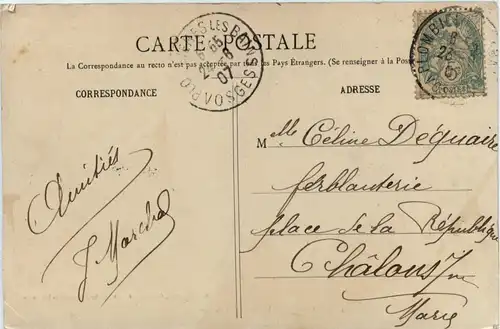 CARTE POSTALE
La Correspondance au recto n'est pas acceptée par tous les Pays Étrangers. (Se renseigner à la Poste
CORRESPONDANCE
ADRESSE
PLOMBIÈRES LES BAINS
VOSGES
22 - 8
07
Amitiés
J Marchal
Mlle Céline Déquaire
ferblanterie
place de la République
Châlons s/ne
Marne